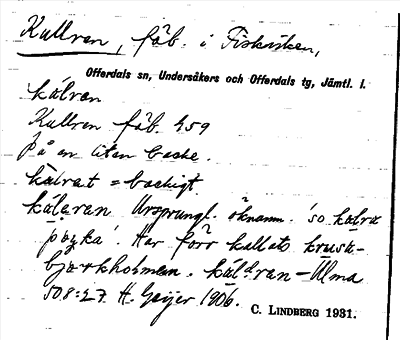 Kullren, fäb. i Fiskviken,
Offerdals sn, Undersåkers och Offerdals tg, Jämtl. l.
kålren
Kullren fäb. 459
på en liten backe.
kålret = backigt
Ursprungl. öknamn. 'so
Har förr kallats krusk-
bjorkholmen.
508:27. H. Geijer 1906.
C. LINDBERG 1931.